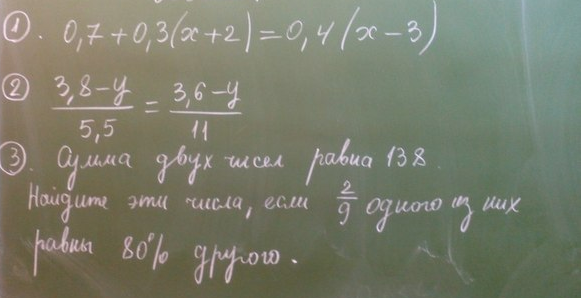 1. 0,7 + 0,3(x + 2) = 0,4(x - 3)
2 (3,8 - y)/5,5 = (3,6 - y)/11
3. Сумма двух чисел равна 138.
Найдите эти числа, если 2/9 одного из них
равны 80% другого.